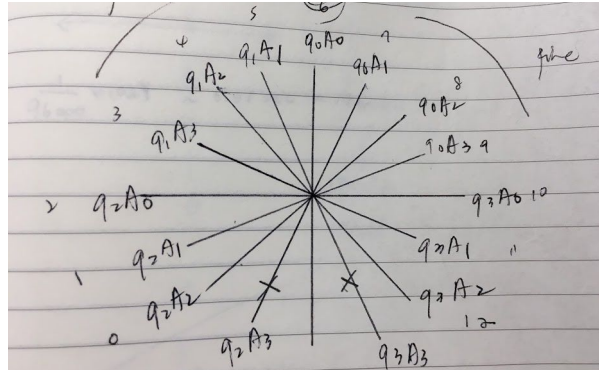 5 6
4 q1A1 q0A0 7
q1A2 q0A1
8
3 q0A2
q1A3 q0A3 9
2 q2A0 q3A0 10
1 q2A1 q3A1 11
q2A2 q3A2
0 12
q2A3 q3A3